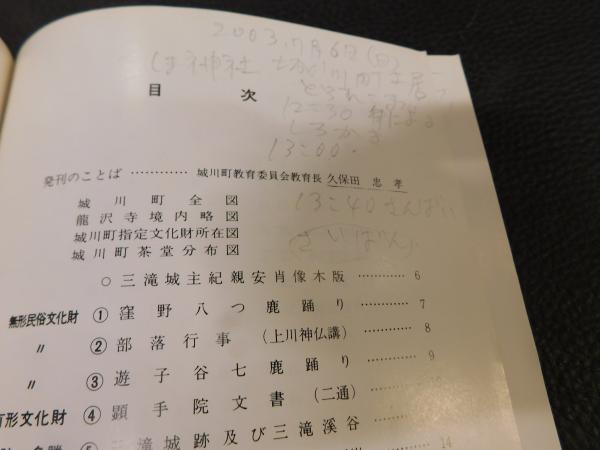 2003.7月6日(日)
神社 城川町土居
12:30
しろかき
13:00
目次
発刊のことば………… 城川町教育委員会教育長 久保田 忠 孝
城川町全図
13:40 さんばい
龍沢寺境内略図
城川町指定文化財所在図
城川町茶堂分布図
○三滝城主紀親安肖像木版………… 6
無形民俗文化財 ① 窪野八つ鹿踊り………… 7
〃 ② 部落行事(上川神仏講)………… 8
〃 ③ 遊子谷七鹿踊り………… 9
有形文化財 ④ 顕手院文書(二通)…………
⑤ 三滝城跡及び三滝渓谷………… 14